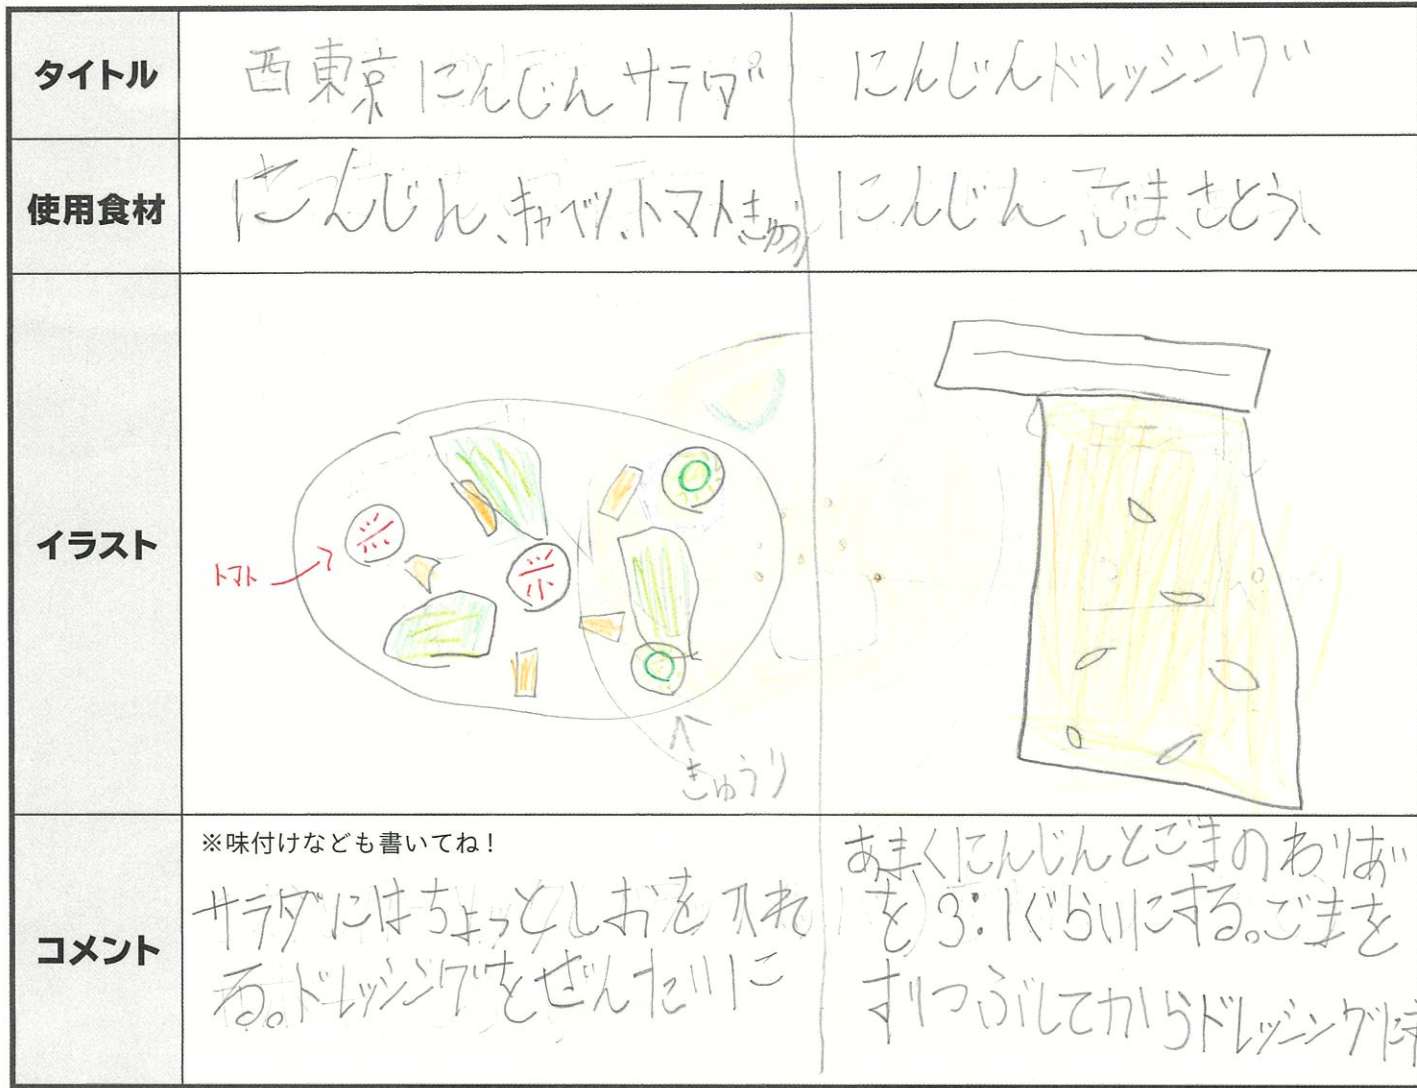 タイトル
西東京にんじんサラダ
にんじんドレッシング
使用食材
にんじん、キャベツ、トマト、きゅうり
にんじん、ごま、さとう、
イラスト
トマト
きゅうり
コメント
※味付けなども書いてね！
サラダにはちょっとしおを入れ
る。ドレッシングをぜんたいに
あまくにんじんとごまのわりあい
を3:1ぐらいにする。ごまを
すりつぶしてからドレッシングに